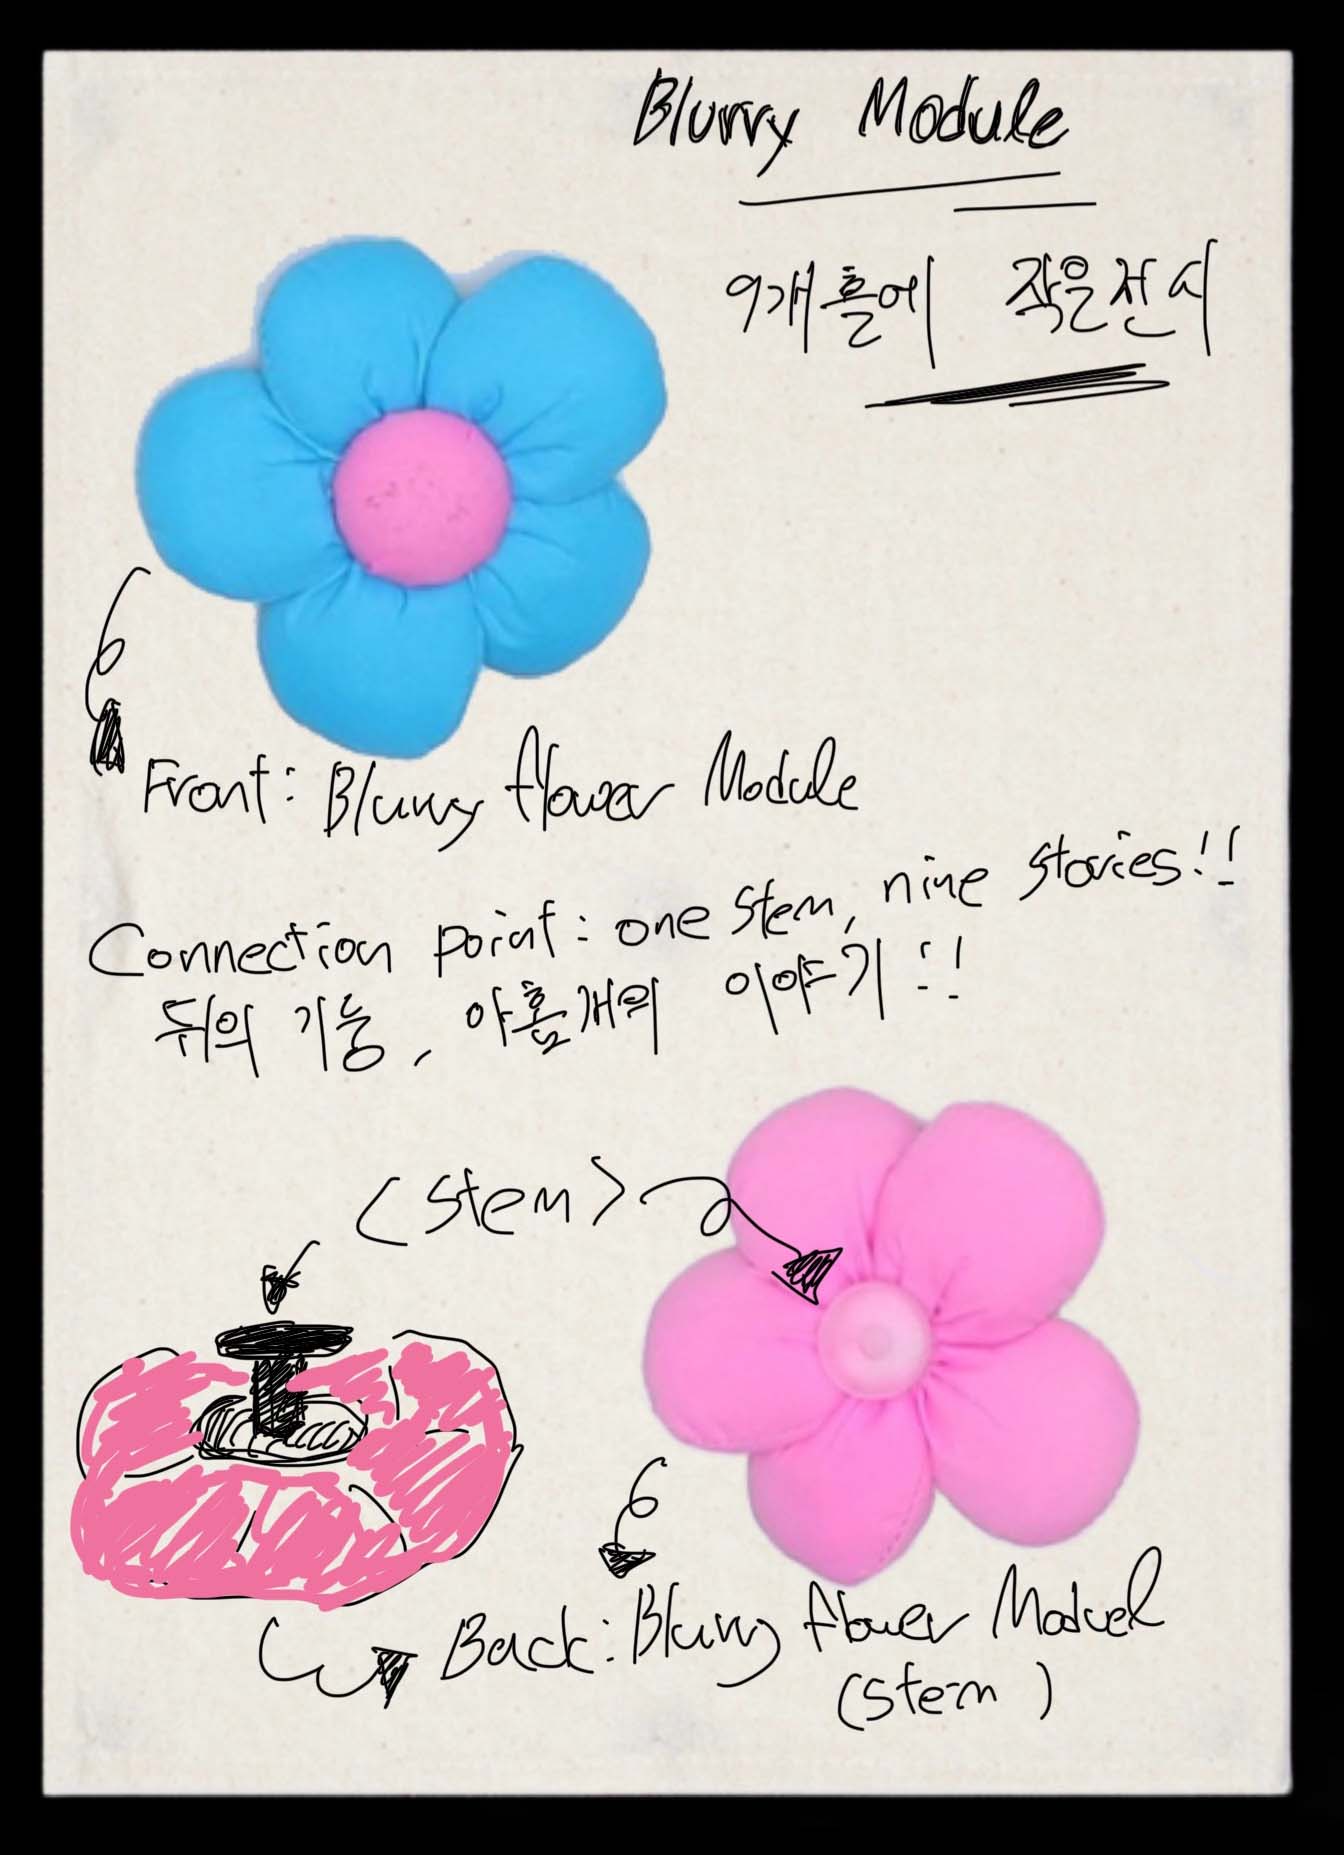 Blurry Module
9개홀에 작은전시
Front: Blurry flower Module
Connection point: one stem, nine stories!!
뒤의 기능, 아홉개의 이야기!!
<stem>
Back: Blurry flower Moduel
(stem)